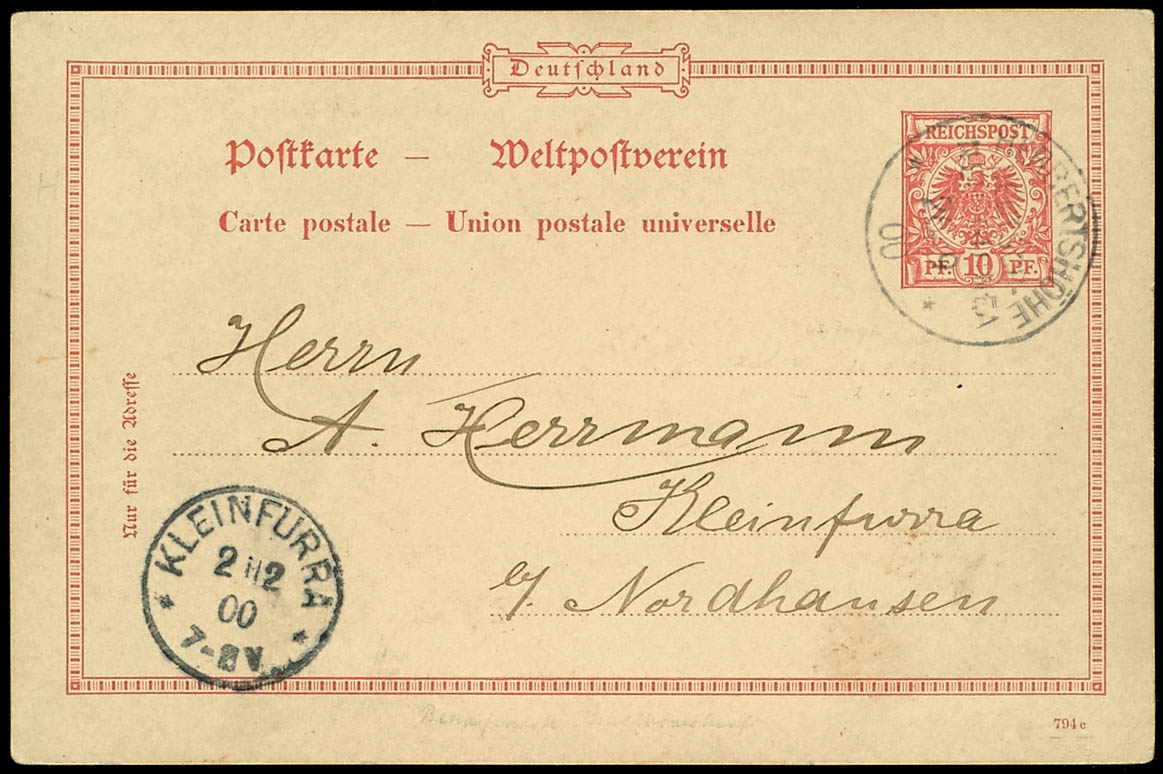 Deutschland
Postkarte — Weltpostverein
Carte postale — Union postale universelle
REICHSPOST
PF. 10 PF.
HERBERTSHÖHE
00
Herrn
A. Herrmann
Kleinfurra
b/ Nordhausen
Nur für die Adresse
KLEINFURRA
2 12
00
7-8 V.
794 c